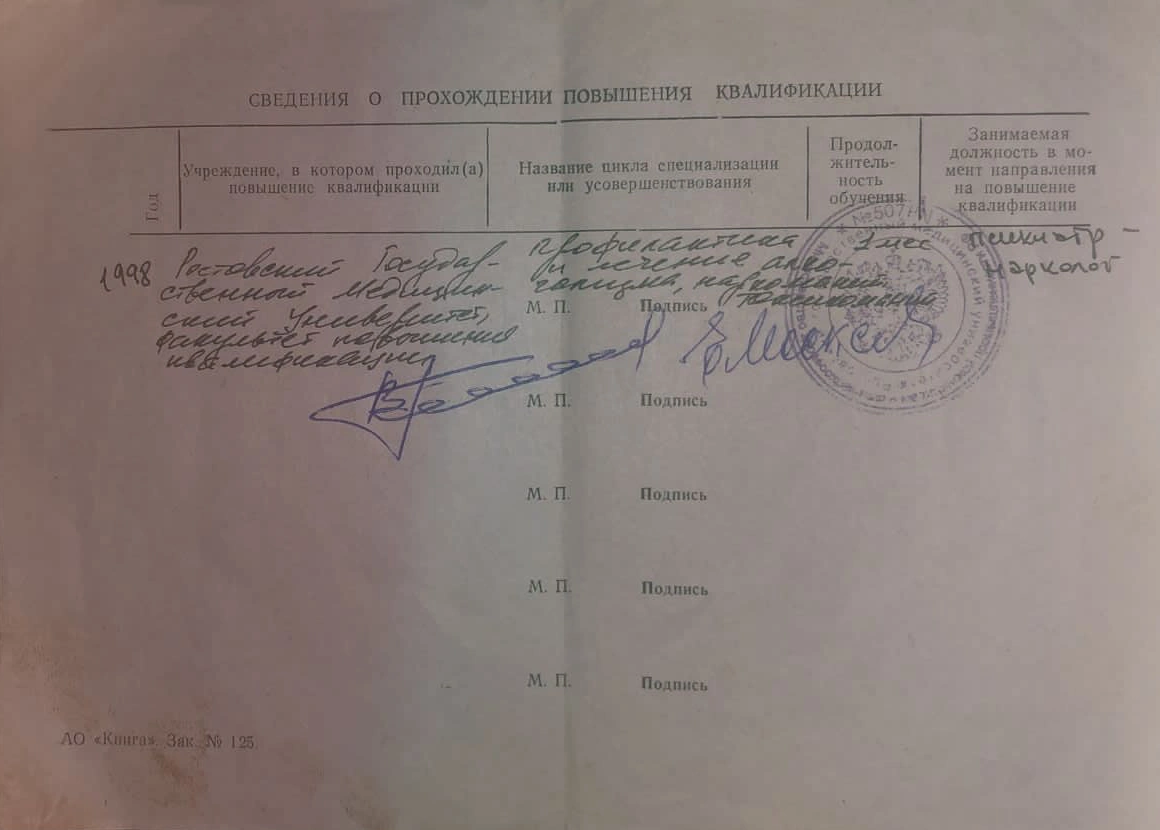 СВЕДЕНИЯ О ПРОХОЖДЕНИИ ПОВЫШЕНИЯ КВАЛИФИКАЦИИ
Год
Учреждение, в котором проходил(а)
повышение квалификации
Название цикла специализации
или усовершенствования
Продол-
житель-
ность
обучения
Занимаемая
должность в мо-
мент направления
на повышение
квалификации
1998
Ростовский Государ-
ственный Медицин-
ский Университет,
факультет повышения
квалификации
Профилактика
и лечение алко-
голизма, наркоманий
токсикоманий
1 мес
психиатр -
нарколог
№507
М. П. Подпись
М. П. Подпись
М. П. Подпись
М. П. Подпись
М. П. Подпись
АО «Книга». Зак. № 125.